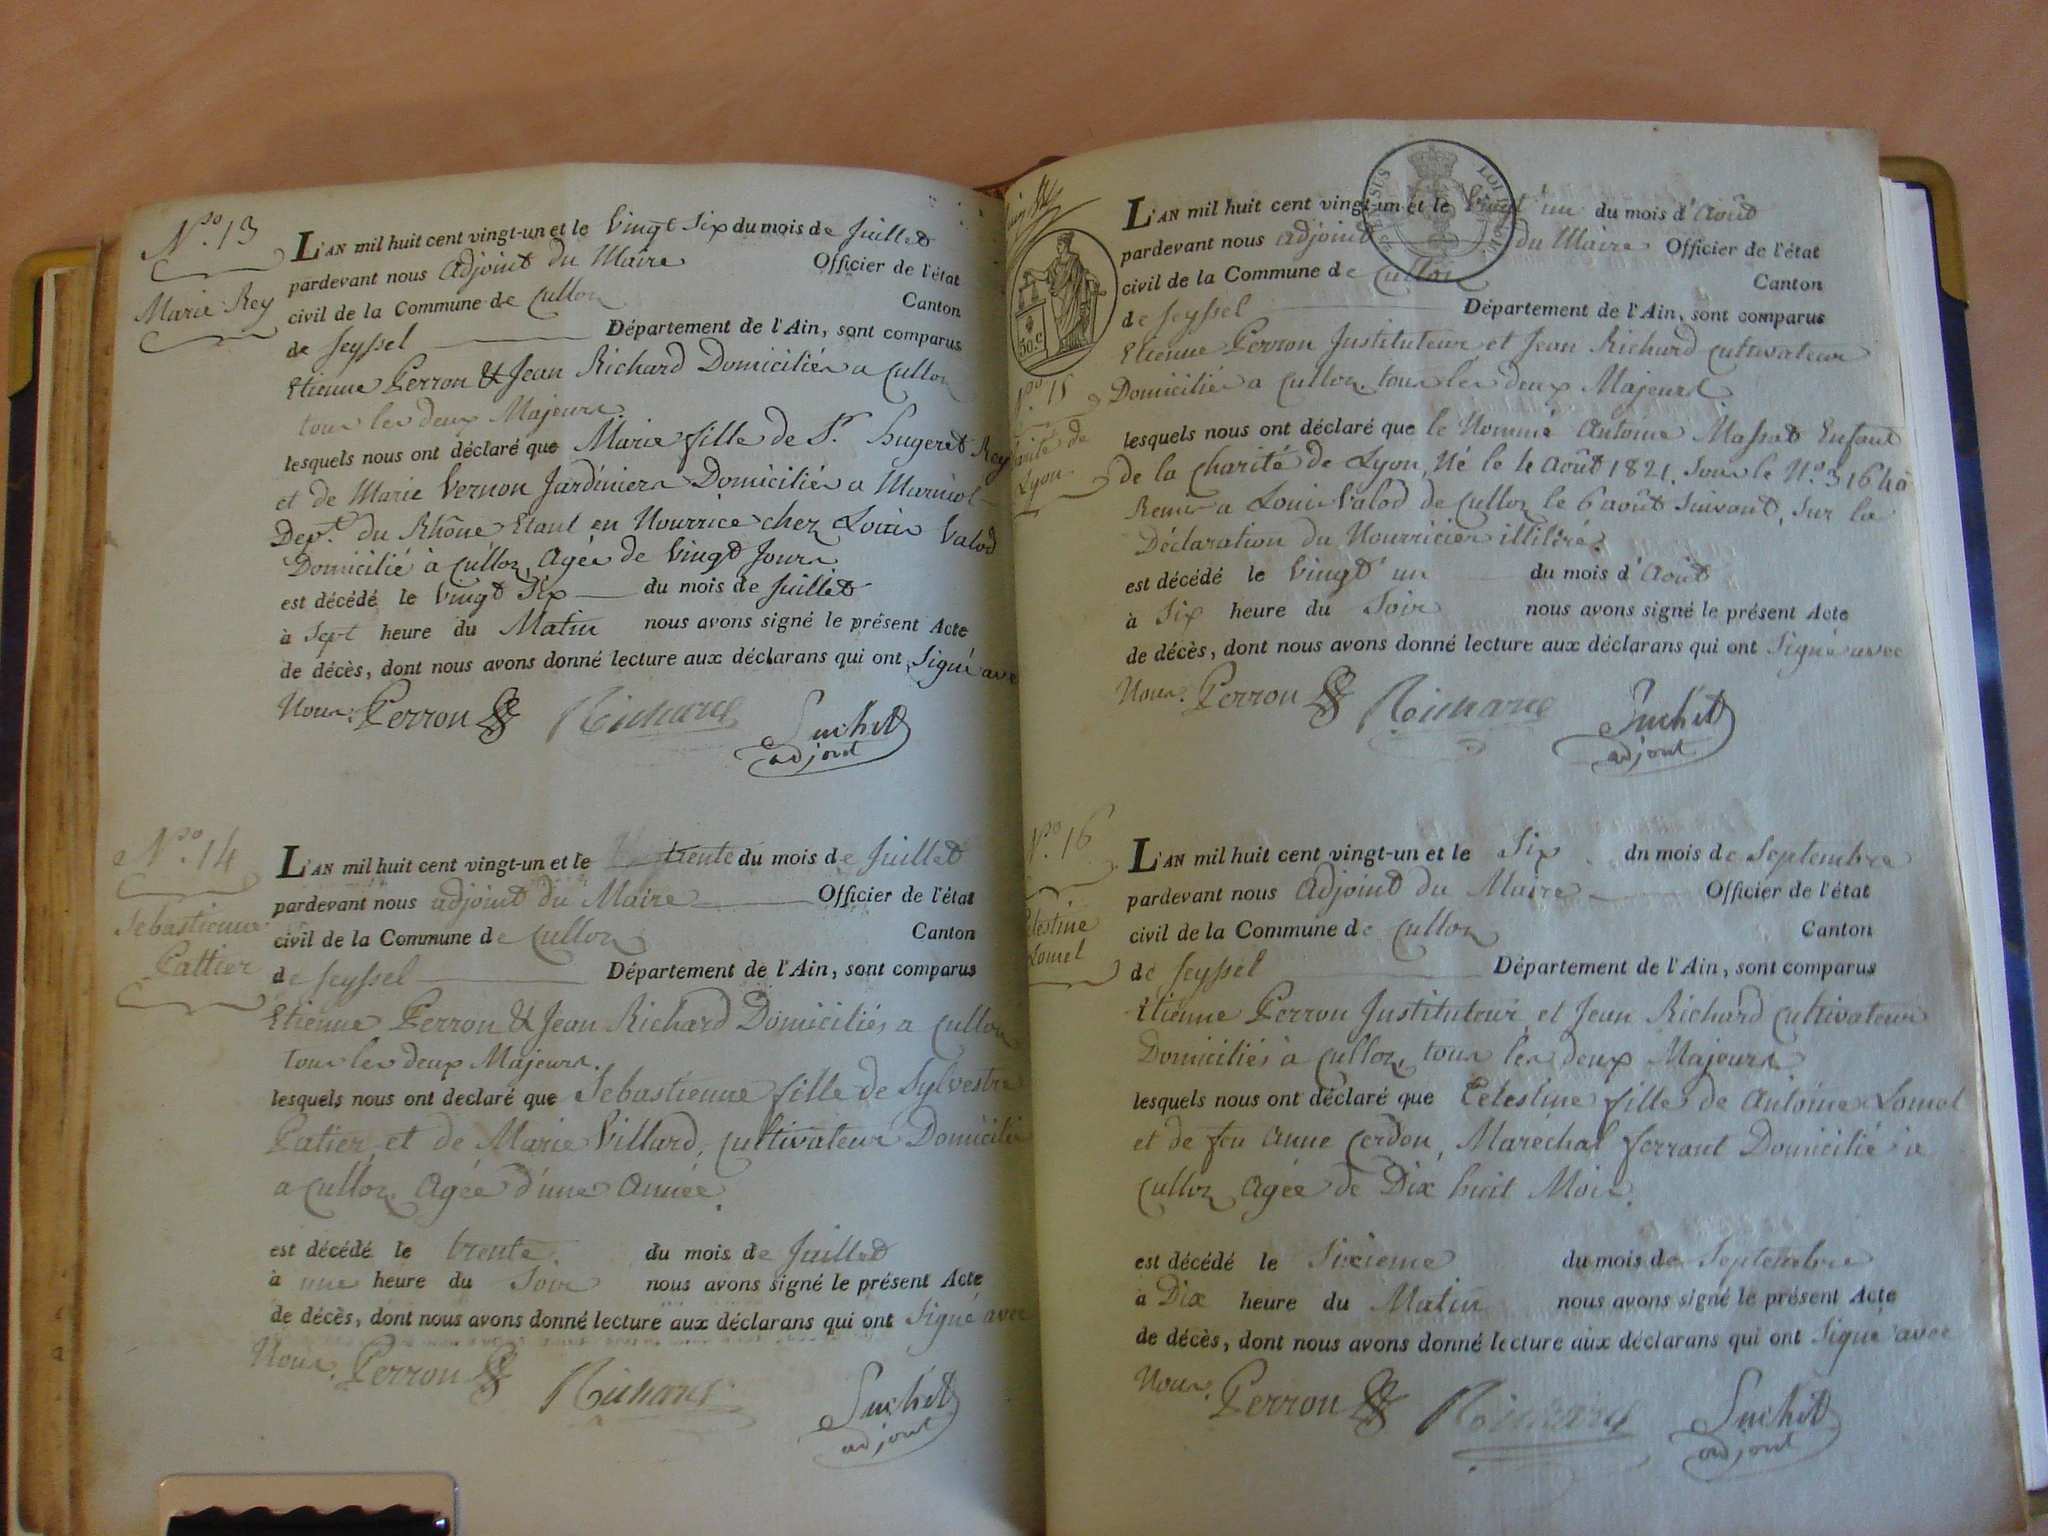 N.º 13
Marie Rey
L'AN mil huit cent vingt-un et le Vingt Six du mois de Juillet
pardevant nous adjoint du Maire Officier de l'état
civil de la Commune de Culloz Canton
de Seyssel Département de l'Ain, sont comparus
Etienne Perron & Jean Richard Domiciliés a Culloz
tous les deux Majeurs
lesquels nous ont déclaré que Marie fille de Sr. hugeret Rey
et de Marie Vernon Jardiniers Domiciliés a
Dept. du Rhône Etant en Nourrice chez Louis Valod
Domicilié à Culloz, Agée de Vingt Jours
est décédé le Vingt Six du mois de Juillet
à Sept heure du Matin nous avons signé le présent Acte
de décès, dont nous avons donné lecture aux déclarans qui ont Signé avec
Nous. Perron Richard Suchet
adjoint
N.º 14
Sebastienne
Pattier
L'AN mil huit cent vingt-un et le trente du mois de Juillet
pardevant nous adjoint du Maire Officier de l'état
civil de la Commune de Culloz Canton
de Seyssel Département de l'Ain, sont comparus
Etienne Perron & Jean Richard Domiciliés a Culloz
tous les deux Majeurs.
lesquels nous ont déclaré que Sebastienne fille de Sylvestre
Patier et de Marie Villard, Cultivateur Domicilié
a Culloz Agée d'une Année.
est décédé le trente du mois de Juillet
à une heure du Soir nous avons signé le présent Acte
de décès, dont nous avons donné lecture aux déclarans qui ont Signé avec
Nous. Perron Richard Suchet
adjoint
50.c
N.º 15
Charité de
Lyon
L'AN mil huit cent vingt-un et le Vingt un du mois d'Août
pardevant nous adjoint du Maire Officier de l'état
civil de la Commune de Culloz Canton
de Seyssel Département de l'Ain, sont comparus
Etienne Perron Instituteur et Jean Richard Cultivateur
Domiciliés a Culloz, tous les deux Majeurs
lesquels nous ont déclaré que le Nommé Antoine Massat Enfant
de la Charité de Lyon, Né le 4 Août 1821. Sous le Nº. 31640
Remis a Louis Valod de Culloz le 6 août Suivant, Sur la
Déclaration du Nourricier illitéré.
est décédé le Vingt un du mois d'Août
à Six heure du Soir nous avons signé le présent Acte
de décès, dont nous avons donné lecture aux déclarans qui ont Signé avec
Nous. Perron Richard Suchet
adjoint
N.º 16
Celestine
Lomel
L'AN mil huit cent vingt-un et le Six dn mois de Septembre
pardevant nous Adjoint du Maire Officier de l'état
civil de la Commune de Culloz Canton
de Seyssel Département de l'Ain, sont comparus
Etienne Perron Instituteur et Jean Richard Cultivateur
Domiciliés à Culloz, tous les deux Majeurs
lesquels nous ont déclaré que Celestine fille de Antoine Lomel
et de feu Anne Cerdon, Maréchal ferrant Domicilié à
Culloz Agée de Dix huit Mois.
est décédé le Sixieme du mois de Septembre
à Dix heure du Matin nous avons signé le présent Acte
de décès, dont nous avons donné lecture aux déclarans qui ont Signé avec
Nous. Perron Richard Suchet
adjoint